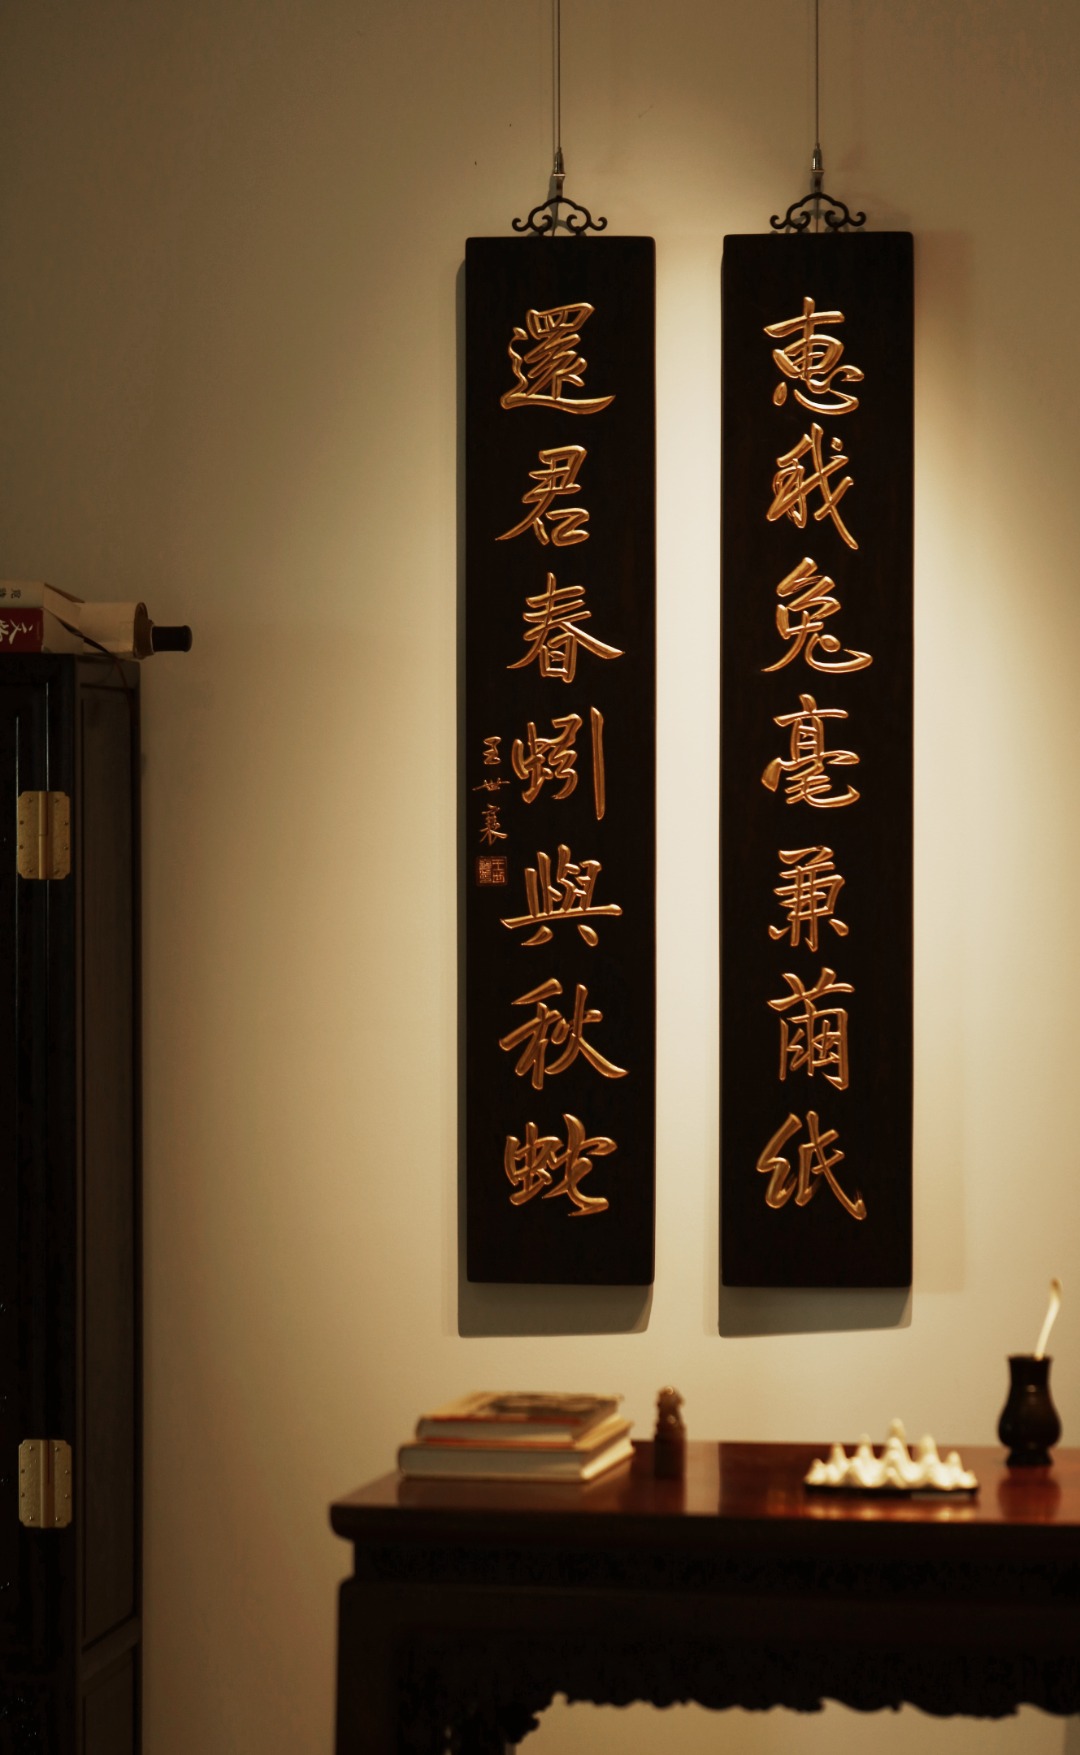 惠我兔毫兼繭紙
還君春蚓與秋蛇
王世襄